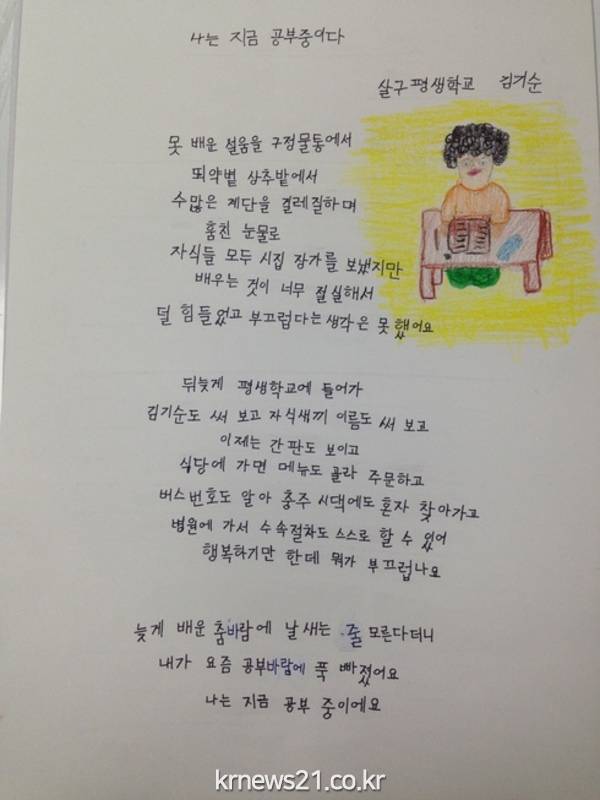 나는 지금 공부중이다
살구평생학교 김기순
못 배운 설움을 구정물통에서
뙤약볕 상추밭에서
수많은 계단을 걸레질하며
훔친 눈물로
자식들 모두 시집 장가를 보냈지만
배우는 것이 너무 절실해서
덜 힘들었고 부끄럽다는 생각은 못 했어요
뒤늦게 평생학교에 들어가
김기순도 써 보고 자식새끼 이름도 써 보고
이제는 간판도 보이고
식당에 가면 메뉴도 골라 주문하고
버스번호도 알아 충주 시댁에도 혼자 찾아가고
병원에 가서 수속절차도 스스로 할 수 있어
행복하기만 한데 뭐가 부끄럽나요
늦게 배운 춤바람에 날 새는 줄 모른다더니
내가 요즘 공부바람에 푹 빠졌어요
나는 지금 공부 중이에요
krnews21.co.kr